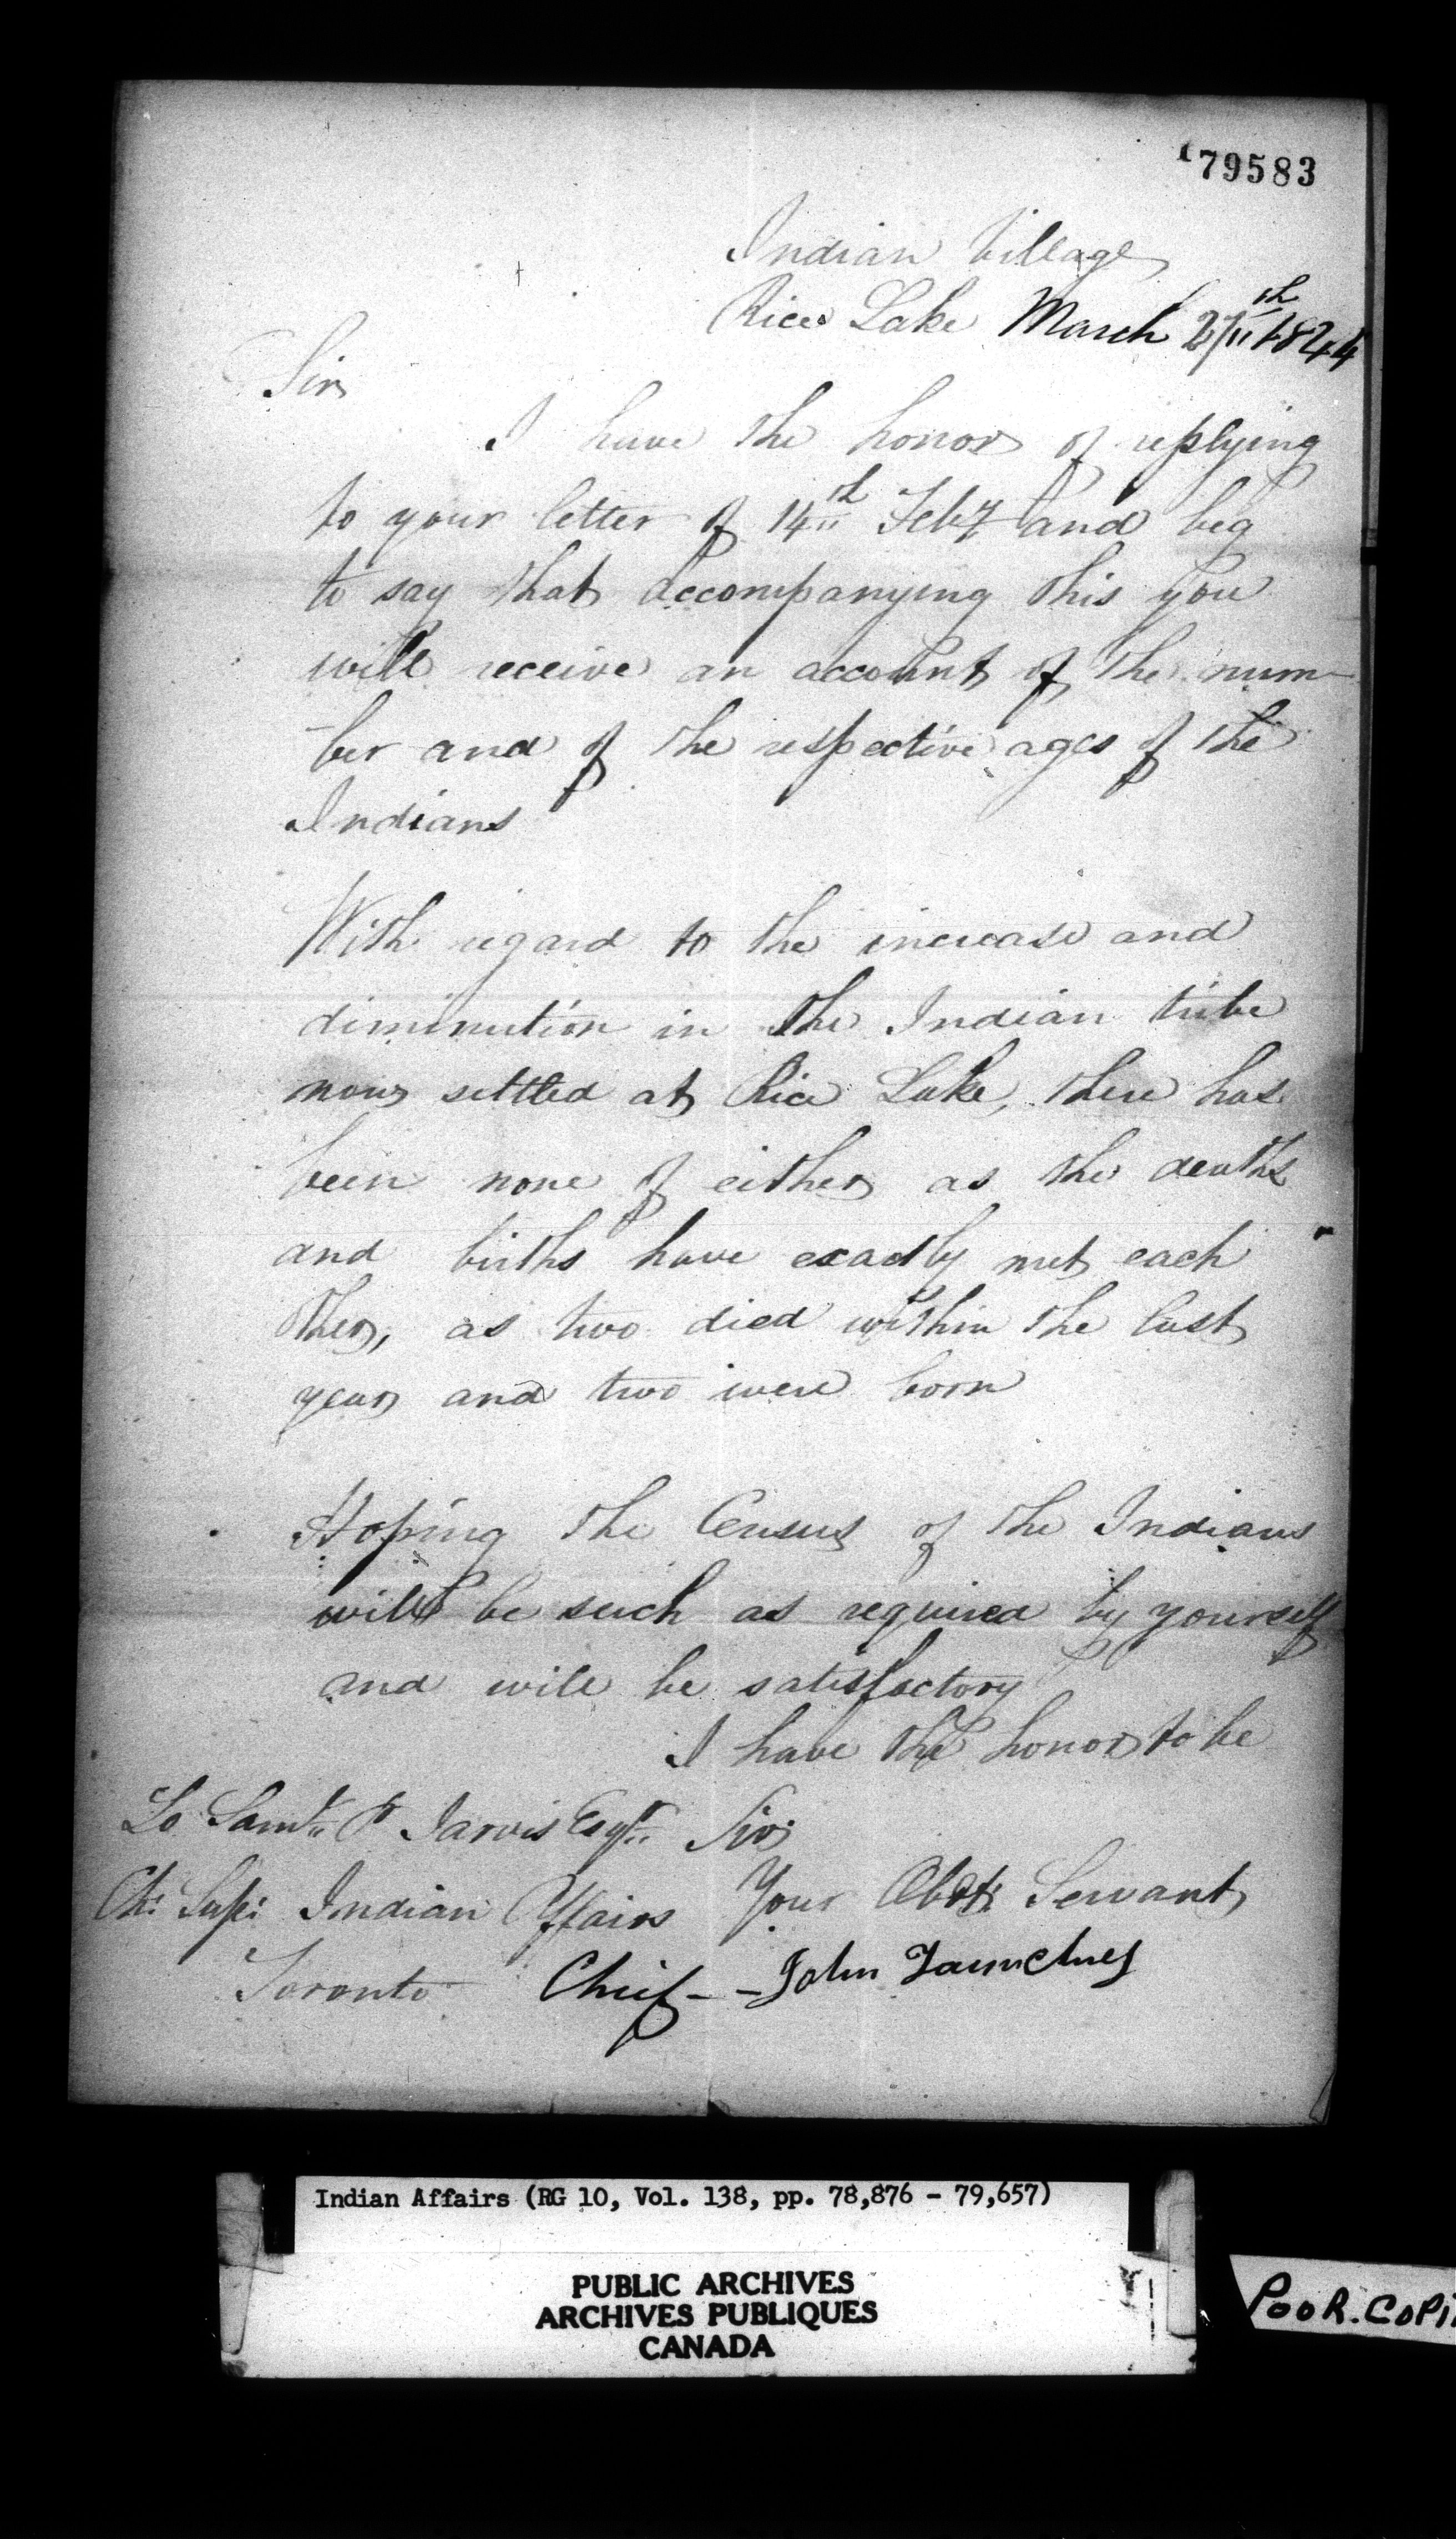 179583
Indian Village
Rice Lake March 27th 1844
Sir
I have the honor of replying
to your letter of 14th Feby and beg
to say that accompanying this you
will receive an account of the num-
ber and of the respective ages of the
Indians
With regard to the increase and
diminution in the Indian tribe
now settled at Rice Lake, there has
been none of either as the deaths
and births have exactly met each
other, as two died within the last
year and two were born
Hoping the Census of the Indians
will be such as required by yourself
and will be satisfactory
I have the honor to be
To Saml P Jarvis Esqr Sir
Ch: Sup: Indian Affairs Your Obdt: Servant
Toronto Chief - - John
Indian Affairs (RG 10, Vol. 138, pp. 78,876 - 79,657)
PUBLIC ARCHIVES
ARCHIVES PUBLIQUES
CANADA
POOR.COPI